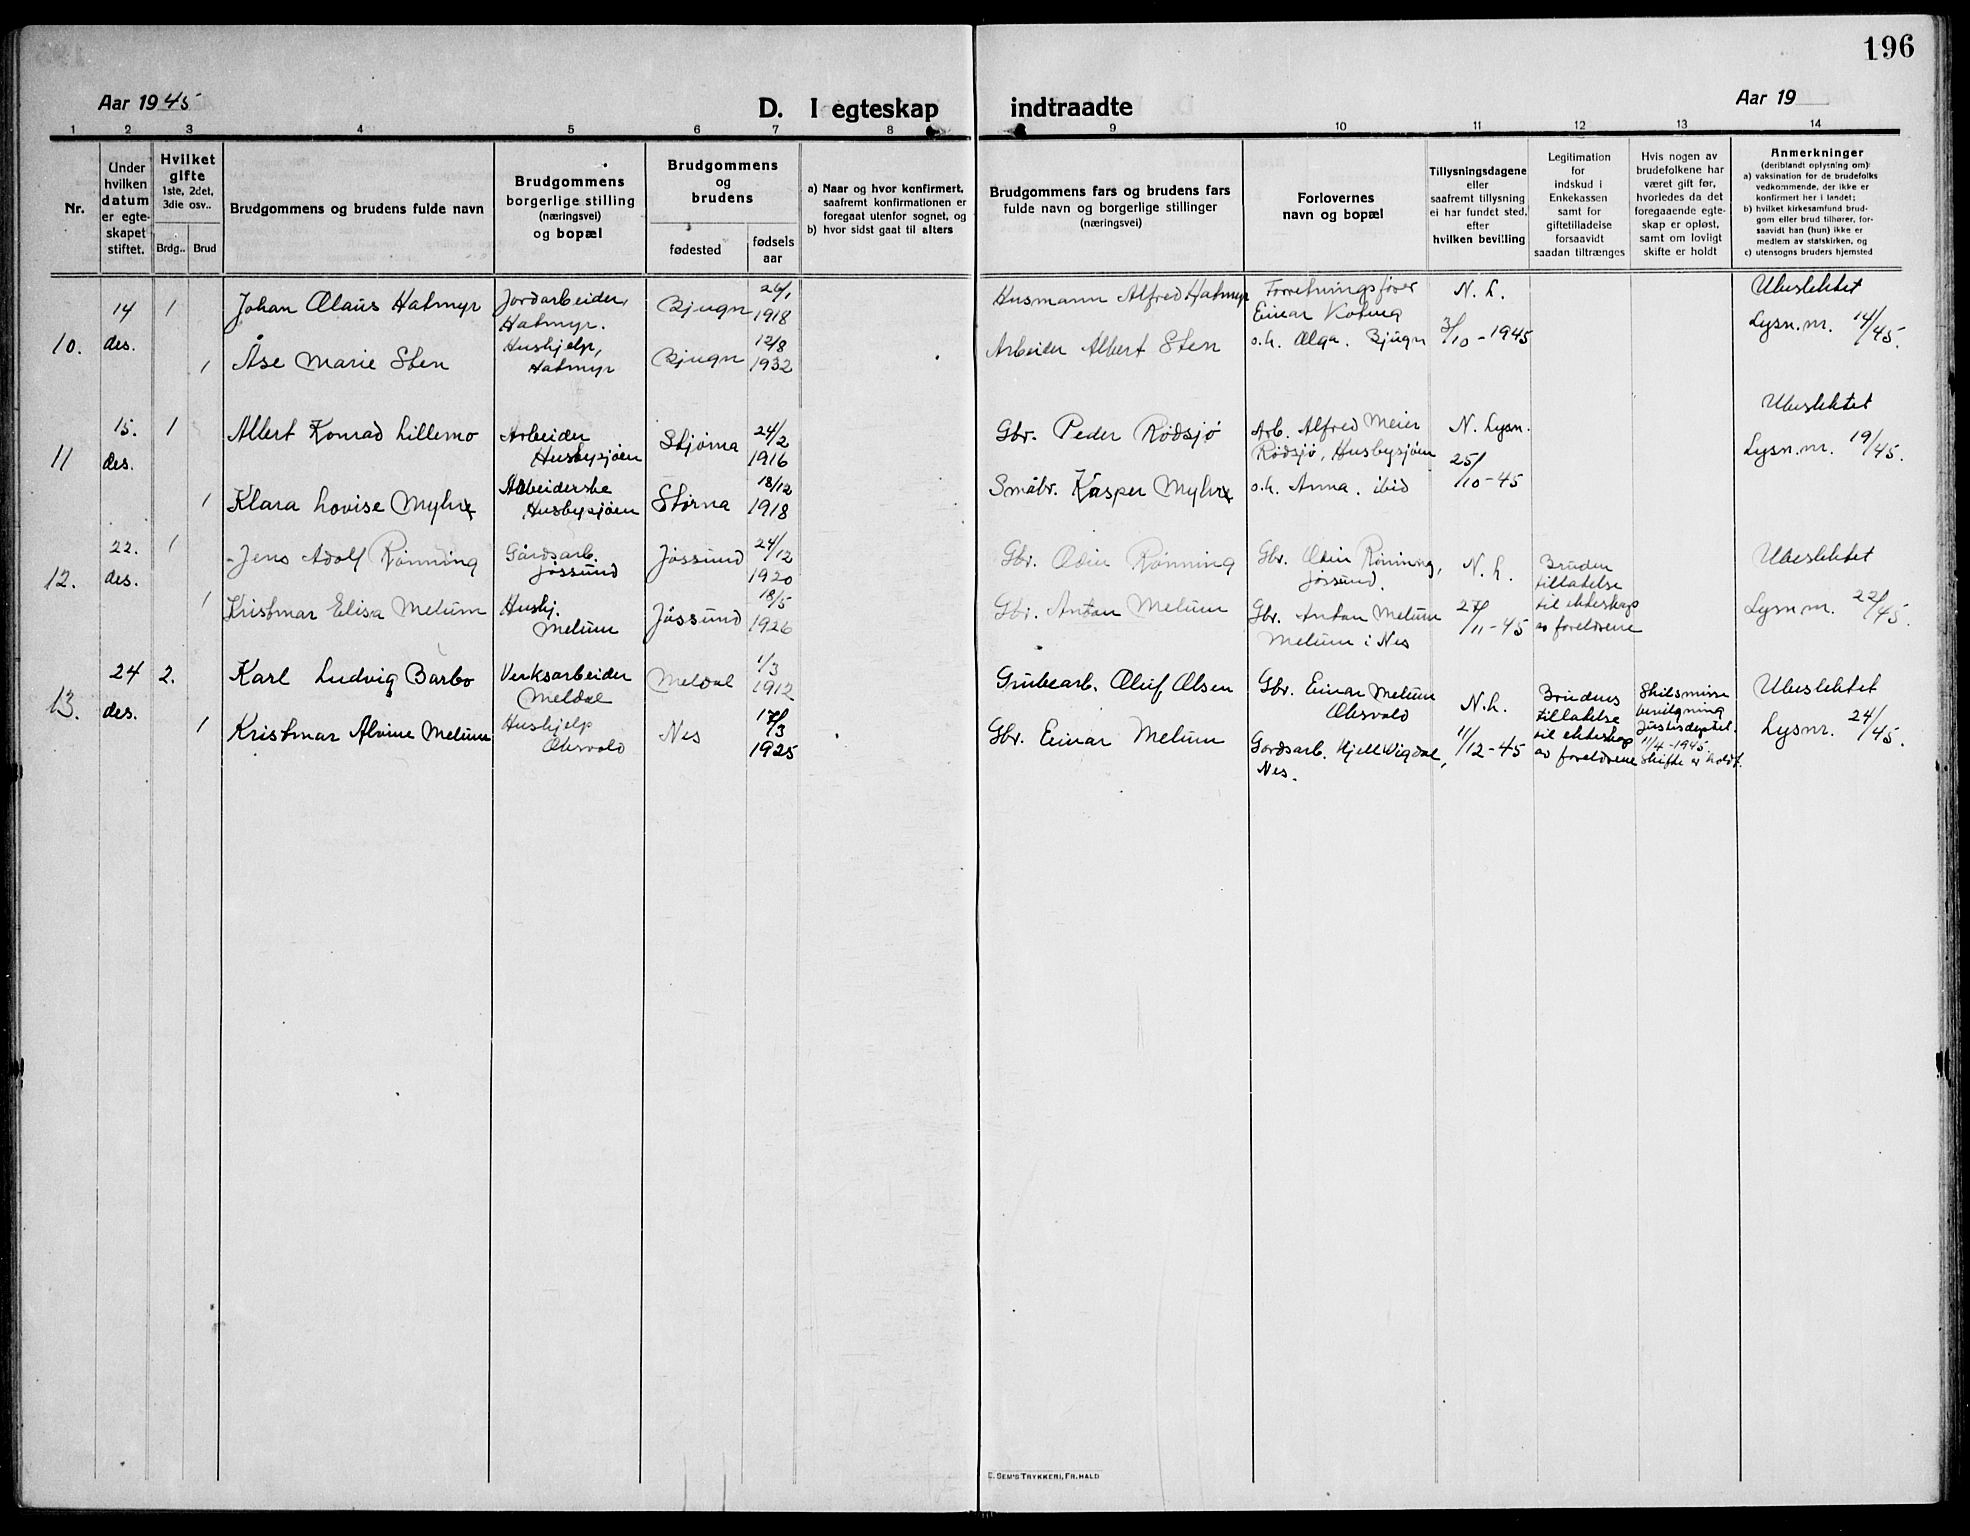 196
Aar 1945
D. I egteskap indtraadte
Aar 19
1 2 3 4 5 6 7 8 9 10 11 12 13 14
Nr.
Under
hvilken
datum
er egte-
skapet
stiftet.
Hvilket
gifte
1ste, 2det,
3die osv..
Brdg.. Brud
Brudgommens og brudens fulde navn
Brudgommens
borgerlige stilling
(næringsvei)
og bopæl
Brudgommens
og
brudens
fødested
fødsels
aar
a) Naar og hvor konfirmert,
saafremt konfirmationen er
foregaat utenfor sognet, og
b) hvor sidst gaat til alters
Brudgommens fars og brudens fars
fulde navn og borgerlige stillinger
(næringsvei)
Forlovernes
navn og bopæl
Tillysningsdagene
eller
saafremt tillysning
ei har fundet sted,
efter
hvilken bevilling
Legitimation
for
indskud i
Enkekassen
samt for
giftetilladelse
forsaavidt
saadan tiltrænges
Hvis nogen av
brudefolkene har
været gift før,
hvorledes da det
foregaaende egte-
skap er opløst,
samt om lovligt
skifte er holdt
Anmerkninger
(deriblandt oplysning om):
a) vaksination for de brudefolks
vedkommende, der ikke er
konfirmert her i landet;
b) hvilket kirkesamfund brud-
gom eller brud tilhører, for-
saavidt han (hun) ikke er
medlem av statskirken, og
c) utensogns bruders hjemsted
10.
14
des.
1
Johan Olaus Hatmyr
Jordarbeider,
Hatmyr.
Bjugn
26/1
1918
Husmann Alfred Hatmyr
Forretningsfører
Einar Koteng
o.h. Olga. Bjugn
N. L.
3/10-1945
Ubeslektet
Lysn.nr. 14/45.
1
Åse Marie Sten
Hushjelp,
Hatmyr
Bjugn
12/8
1932
Arbeider Albert Sten
11
15.
des.
1
Albert Konrad Lillemo
Arbeider
Husbysjøen
Stjørna
24/2
1916
Gbr. Peder Rødsjø
Arb. Alfred Meier
Rødsjø, Husbysjøen
o.h. Anna. ibid
N. Lysn.
25/10-45
Ubeslektet
Lysn.nr. 19/45.
1
Klara Lovise Myhre
Arbeiderske
Husbysjøen
Størna
18/12
1918
Småbr. Kasper Myhre
12.
22.
des.
1
Jens Adolf Rønning
Gårdsarb.
Jøssund
Jøssund
24/12
1920
Gbr. Odin Rønning
Gbr. Odin Rønning,
Jøssund.
N. L.
27/11-45
Bruden
tillatelse
til ekteskap
av foreldrene
Ubeslektet
Lysn nr. 22/45.
1
Kristmar Elisa Melum
Hushj.
Melum
Jøssund
18/5
1926
Gbr. Anton Melum
Gbr. Anton Melum
Melum i Nes
13.
24
des.
2.
Karl Ludvig Barbo
Verksarbeider
Meldal
Meldal
1/3
1912
Grubearb. Oluf Olsen
Gbr. Einar Melum
Oksvold
N.L.
11/12-45
Brudens
tillatelse
til ekteskap
av foreldrene
Skilsmisse
bevilgning
Justisdeptet.
11/4-1945.
Skifte er holdt.
Ubeslektet
Lysnr. 24/45.
1
Kristmar Alvine Melum
Hushjelp
Oksvold
Nes
17/3
1925
Gbr. Einar Melum
Gårdsarb. Kjell Vigdal,
Nes.
E. SEM'S TRYKKERI, FR.HALD